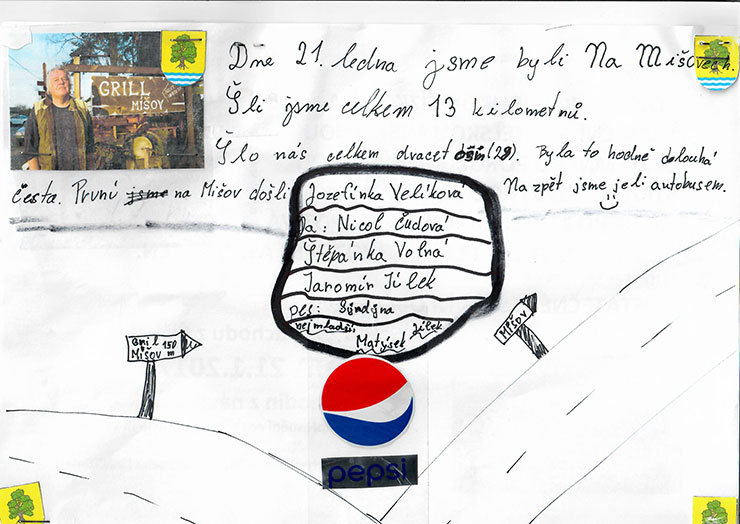 GRILL
MIŠOV
Dne 21. ledna jsme byli Na Mišovech.
Šli jsme celkem 13 kilometrů.
Šlo nás celkem dvacet (28). Byla to hodně dlouhá
česta. První jsme na Mišov došli
Na zpět jsme jeli autobusem.
Jozefínka Velíková
Já: Nicol Čudová
Štěpánka Volná
Jaromír Jílek
pes: Sindyna
nejmladší Matýsek Jílek
Gril 150
Mišov m
MIŠOV
pepsi